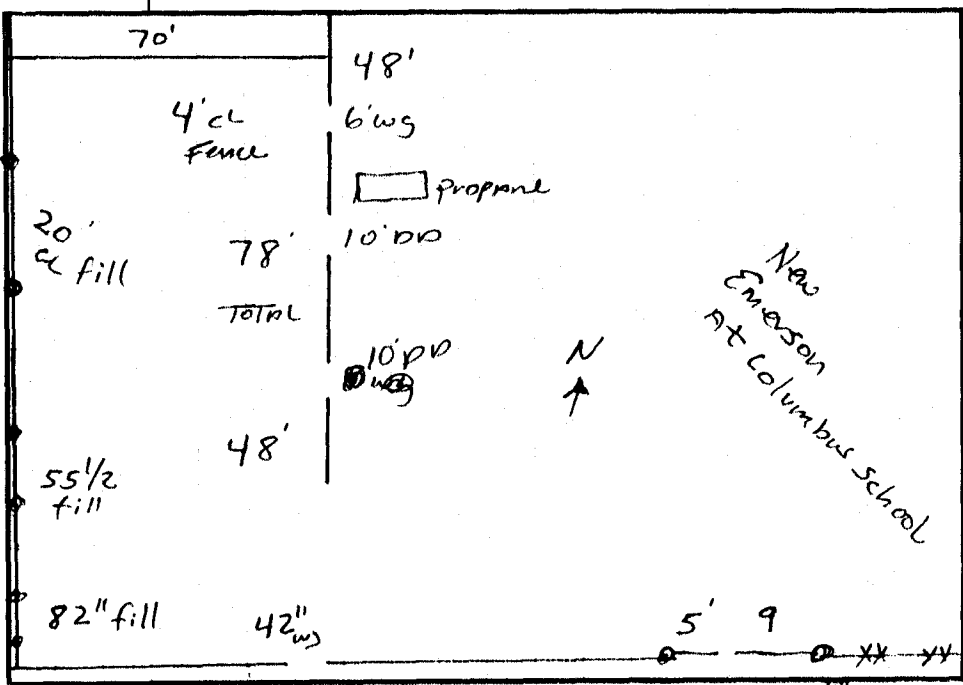 70'
48'
4' CL
Fence
6' wg
propane
20'
CL fill
78'
TOTAL
10' DD
10' DD
N
New
Emerson
At Columbus School
48'
55 1/2
fill
82" fill
42"
wg
5' 9
XX XX